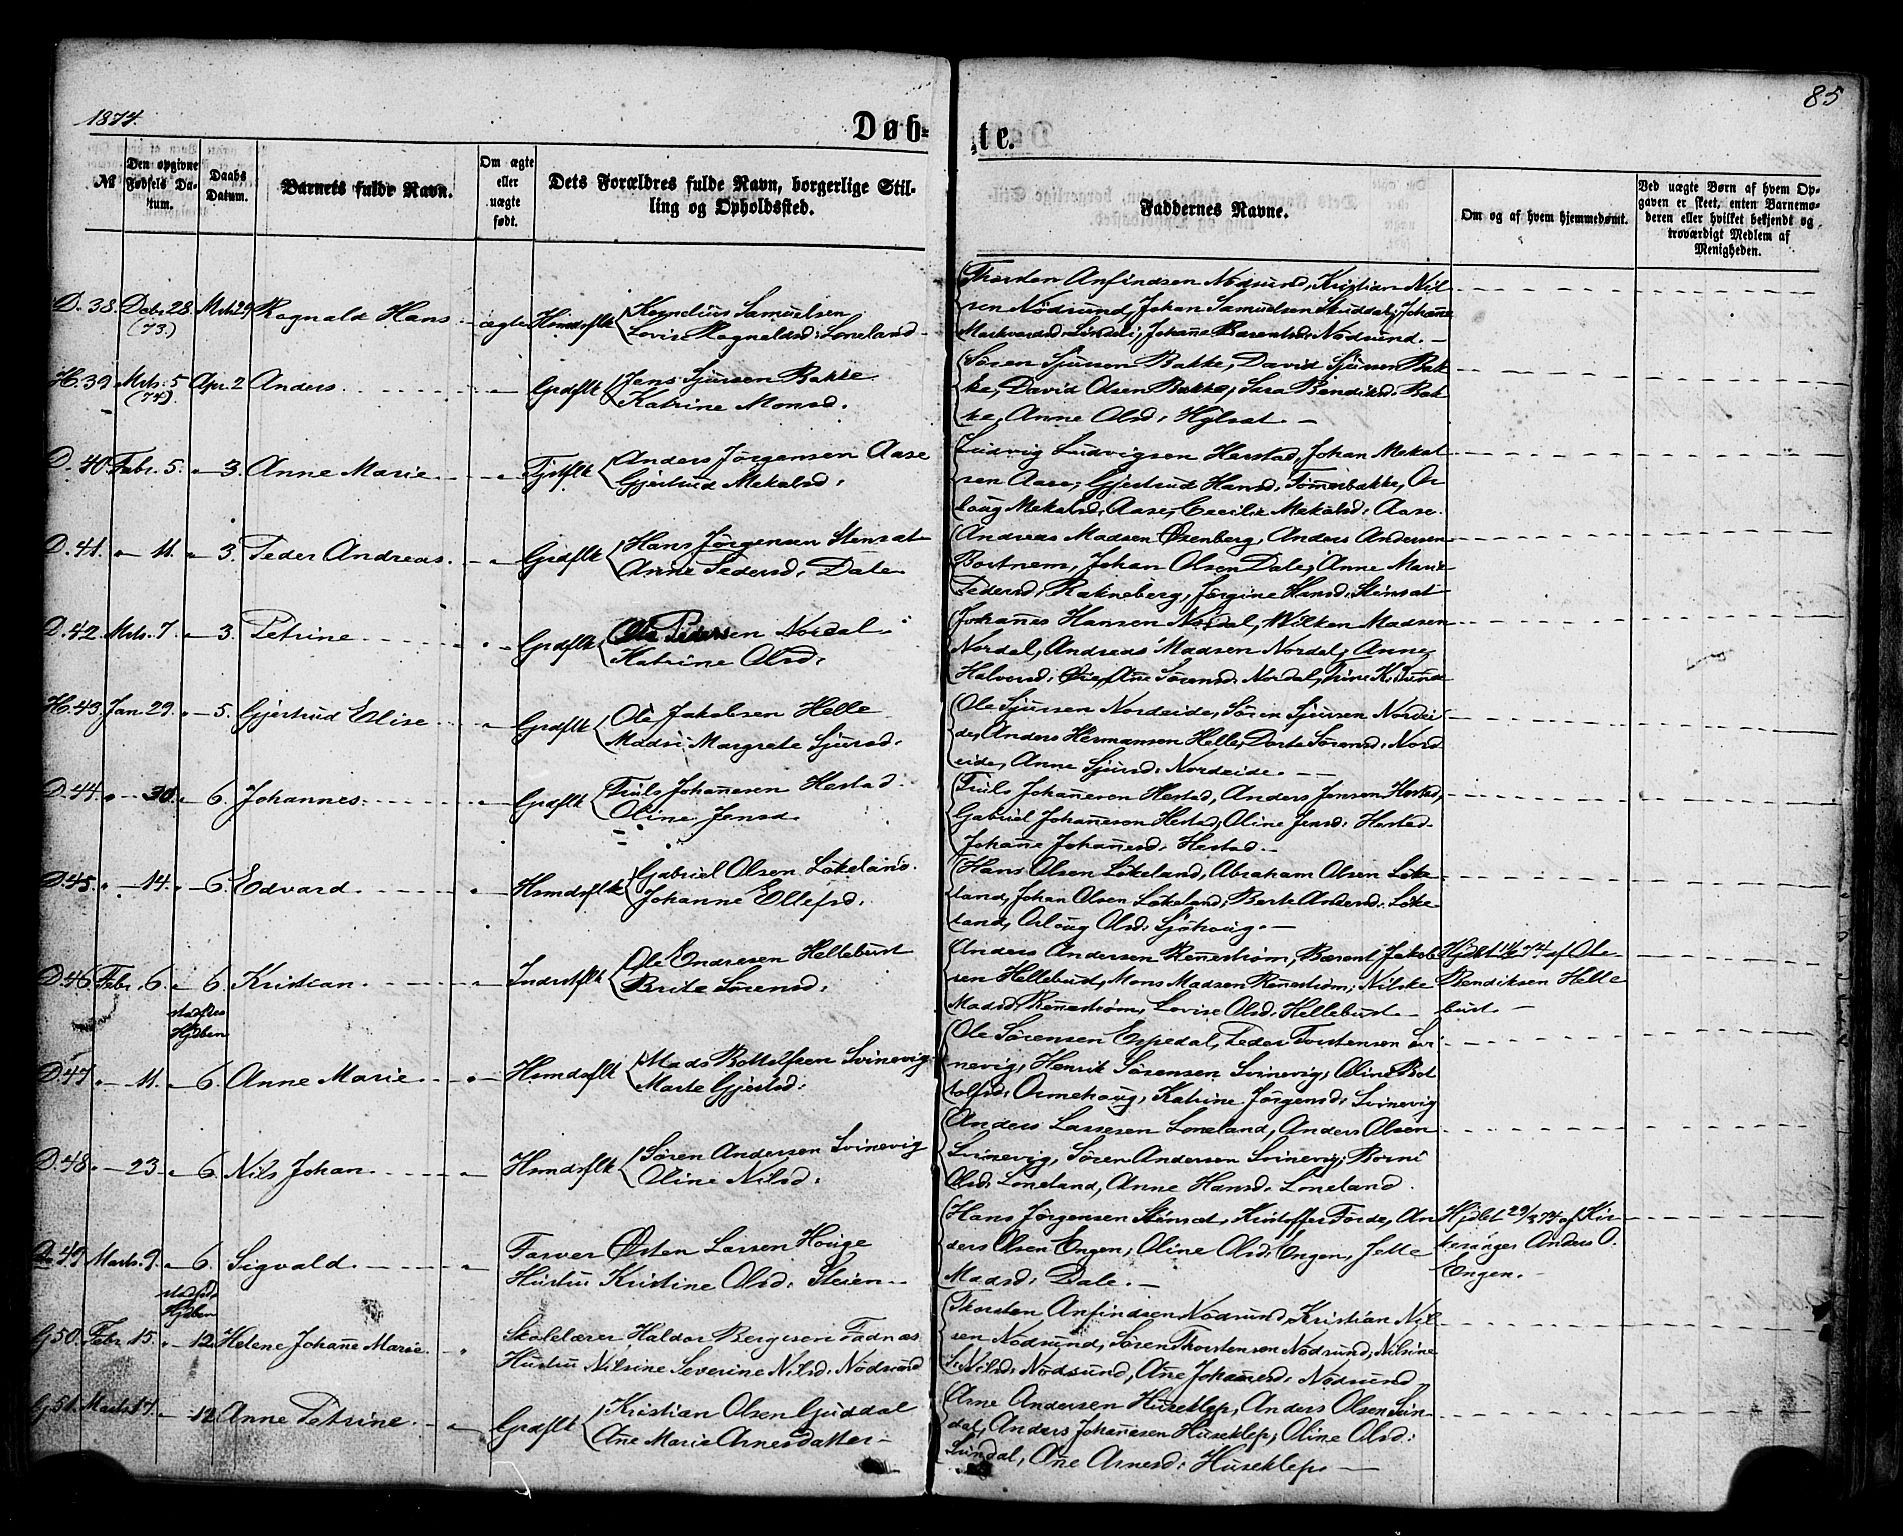 1874.
85
Døb-
te.
№
Den opgivne Fødsels Da-tum.
Daabs Datum.
Barnets fulde Navn.
Om ægte eller uægte født.
Dets Forældres fulde Navn, borgerlige Stil-
ling og Opholdssted.
Faddernes Navne.
Om og af hvem hjemmedøbt.
Ved uægte Børn af hvem Op-
gaven er skeet, enten Barnemo-
deren eller hvilket bekjendt og
troværdigt Medlem af
Menigheden.
D. 38. Debr. 28. (73.) Mrts 29 Ragnald Hans ægte Hsmdsflk Kornelius Samuelsen
Lovise Ragnaldsd: Loneland
Thorsten Anfindsen Nødsund, Kristian Nil-
sen Nødsund, Johan Samuelsen Skiddal, Johanne
Markvardsd: Lindeli, Johanne Barentsd: Nødsund.
H. 39 Mrts. 5 (74). Apr. 2 Anders. Grdflk Jens Sjursen Bakke
Katrine Monsd.
Søren Sjursen Bakke, David Sjursen Bak-
ke, David Olsen Bakke, Sara Bendiksd: Bak-
ke, Anne Olsd:
D. 40. Febr. 5. " 3. Anne Marie Tjstflk Anders Jørgensen Aase
Gjertrud Mekalsd:
Ludvig Ludvigsen Harstad, Johan Mekal-
sen Aase, Gjertrud Hansd: Tømerbakke, Or-
loug Mekalsd: Aase, Cecilie Mekalsd: Aase.
D. 41. " 11. " 3. Peder Andreas. Grdflk Hans Jørgensen Stensæt
Anne Pedersd: Dale
Andreas Madsen Øxenberg, Anders Andersen
Bortnem, Johan Olsen Dale, Anne Marie
Pedersd: Rakneberg, Jørgine Hansd: Stensæt
D. 42 Mrts. 7. " 3. Petrine Grdflk Ole Pedersen Nordal
Katrine Olsd:
Johannes Hansen Nordal, Wilken Madsen
Nordal, Andreas Madsen Nordal, Anne
Halvorsd: Øie, Ane Sørensd: Nordal,
H. 43. Jan. 29. " 5. Gjertrud Elise Grdflk Ole Jakobsen Helle
Madsi Margrete Sjursd.
Ole Sjursen Nordeide, Søren Sjursen Nordei-
de, Anders Hermansen Helle, Dorte Sørensd: Nord-
eide, Anne Sjursd: Nordeide.
D. 44. " 30. " 6. Johannes. Grdflk Truls Johannesen Hestad.
Oline Jensd.
Truls Johannesen Hestad, Anders Jensen Hestad,
Gabriel Johannesen Hestad, Oline Jensd: Hestad.
Johanne Johannesd: Hestad.
D. 45. " 14. " 6. Edvard Hsmdsflk Gabriel Olsen Løkeland.
Johanne Ellefsd:
Hans Olsen Løkeland, Abraham Olsen Løke-
land, Johan Olsen Løkeland, Berte Andersd: Løke-
land, Orloug Olsd: Sjøhoug.
D. 46 Febr. 6. " 6. Kristian Indrstflk Ole Endresen Hellebust
Brite Sørensd:
Anders Andersen Rennestrøm, Barent Jakob-
sen Hellebust, Mons Madsen Rennestrøm, Nilske
Madsd: Rennestrøm, Lovise Olsd: Hellebust
Hjdbt 74 af Ole
Bendiksen Helle
bust
stadfæs
Hjdben
D. 47. " 11. " 6. Anne Marie Hsmdsflk Mads Bottolfsen Svinevig
Marte Gjertsd:
Ole Sørensen Espedal, Peder Torstensen Svi-
nevig, Henrik Sørensen Svinevig, Oline Bot
tolfsd: Ormehoug, Katrine Jørgensd: Svinevig
D. 48. " 23. " 6. Nils Johan Hsmdsflk Søren Andersen Svinevig
Oline Nilsd:
Anders Lassesen Loneland, Anders Olsen
Svinevig, Søren Andersen Svinevig, Borni
Olsd: Loneland, Anne Hansd: Loneland.
D. 49 Marts. 9. " 6. Sigvald. Farver Østen Larsen Houge
Hustru Kristine Olsd: Steien
Hans Jørgensen Stensæt, Kristoffer Førde, An-
ders Olsen Engen, Oline Olsd: Engen, Jette
Madsd: Dale.
Hjdbt 29/3 74 af Kir-
kesanger Anders O.
Engen.
stadfæs
Hjdben
G. 50. Febr. 15. " 12. Helene Johanne Marie. Skolelærer Haldor Bergesen Fadnæs
Hustru Nilsine Severine Nilsd: Nødsund
Thorsten Anfindsen Nødsund, Kristian Nil-
sen Nødsund, Søren Thorstensen Nødsund, Nilsine
S. Nilsd: Nødsund, Ane Johannesd: Nødsund
G. 51. Marts. 17. " 12 Anne Petrine Grdflk Kristian Olsen Guddal
Ane Marie Arnesdatter
Arne Andersen Huseklep, Anders Olsen Svin-
dal, Anders Johannesen Huseklep, Oline Olsd:
Svindal, Ane Arnesd: Huseklep